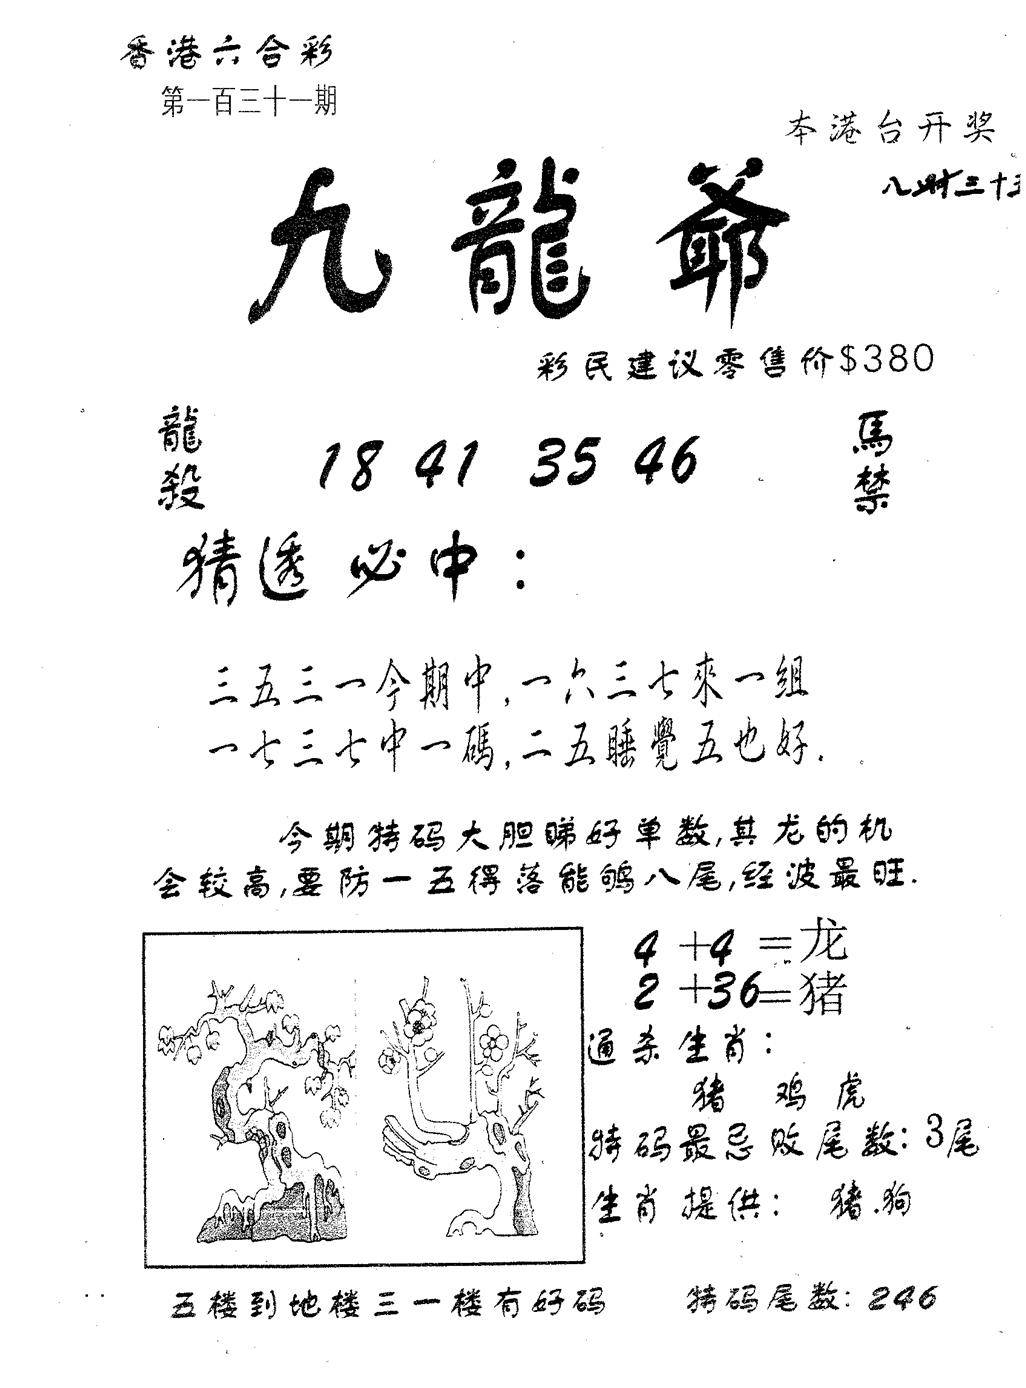 香港六合彩
第一百三十一期
本港台开奖
八时三十五
九龍爺
彩民建议零售价$380
龍殺
18 41 35 46
馬禁
猜透必中：
三五三一今期中,一六三七來一组
一七三七中一碼,二五睡覺五也好.
今期特码大胆睇好单数,其龙的机
会较高,要防一五得落能鸲八尾,经波最旺.
4+4=龙
2+36=猪
通杀生肖：
猪 鸡 虎
特码最忌败尾数：3尾
生肖提供：猪.狗
五楼到地楼三一楼有好码
特码尾数：246